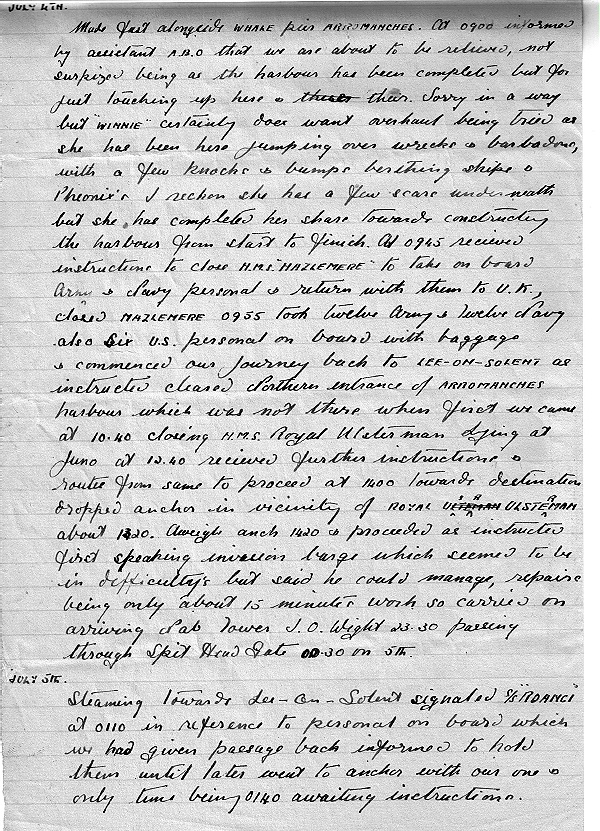 JULY 4TH.
Made fast alongside WHALE pier ARROMANCHES. At 0900 informed
by assistant A.B.O that we are about to be relieved, not
surprized being as the harbour has been completed but for
just touching up here & theres there. Sorry in a way
but "WINNIE" certainly does want overhaul being tried as
she has been here jumping over wrecks & barbadons,
with a few knocks & bumps berthing ships &
Pheonix's I reckon she has a few scars underneath
but she has completed her share towards constructing
the harbour from start to finish. At 0945 recieved
instructions to close H.M.S. "HAZLEMERE" to take on board
Army & Navy personal & return with them to U.K.,
closed HAZLEMERE 0955 took twelve Army & twelve Navy
also Six U.S. personal on board with baggage
& commenced our journey back to LEE-ON-SOLENT as
instructed cleared Northern entrance of ARROMANCHES
harbour which was not there when first we came
at 10.40 closing H.M.S. Royal Ulsterman lying at
Juno at 12.40 recieved further instructions &
routes from same to proceed at 1400 towards destination
dropped anchor in vicinity of ROYAL ULSTERMAN
about 1320. Aweigh anch 1420 & proceeded as instructed
first speaking invasion barge which seemed to be
in difficultys but said he could manage, repairs
being only about 15 minutes work so carried on
arriving Nab Tower I.O. Wight 23.30 passing
through Spit Head Gate 00.30 on 5th.
JULY 5TH.
Steaming towards Lee-On-Solent signated
at 0110 in reference to personal on board which
we had given passage back informed to hold
them until later went to anchor with our one &
only time being 0140 awaiting instructions.